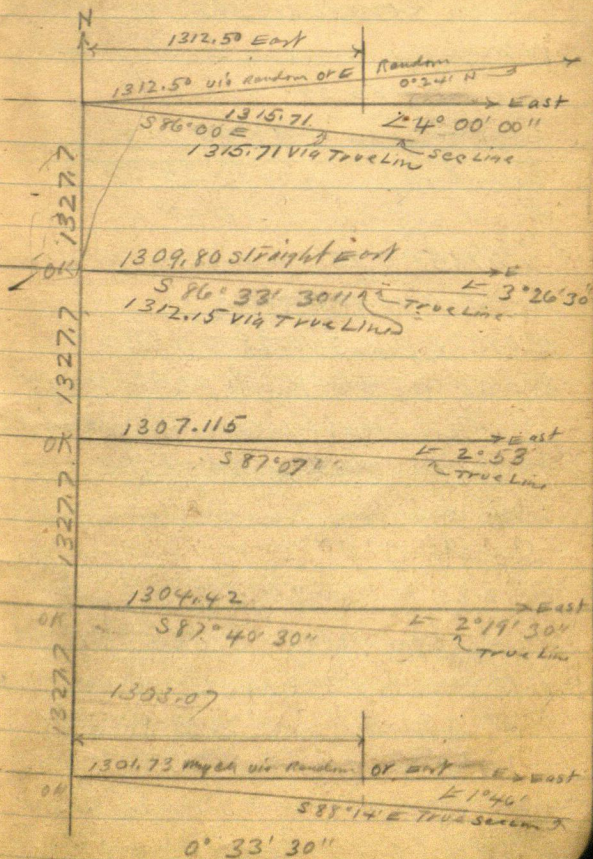 N
1312.50 East
1312.50 via Random or E
Random
0°241 N
East
1315.71
S 86°00 E
∠ 4° 00' 00"
1315.71 via True Lin
Sec Line
1327.7
1309.80 Straight East
E
OK
S 86° 33' 30"
∠ 3°26'30
True Line
1312.15 via True Line
1327.7
1307.115
East
OK
S 87°07'
∠ 2°53'
True Line
1327.7
1304.42
East
OK
S 87° 40' 30"
∠ 2°19' 30"
True Line
1303.07
1327.7
1301.73 via Random or East
East
OK
∠ 1°46'
S 88°14' E True
0° 33' 30"